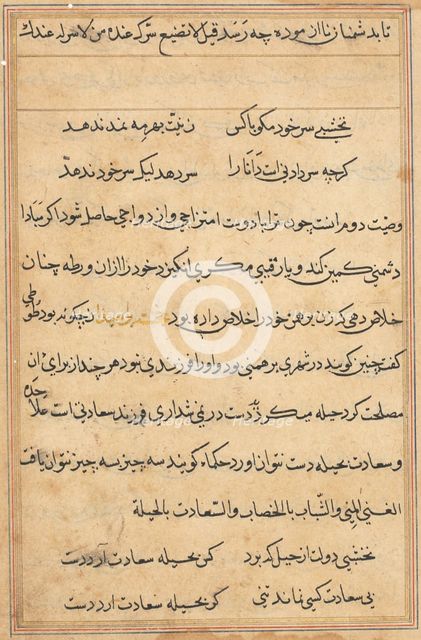 تا بدشمنان نا ازموده چه رسد قیل لا تضیع سرک عند من لا سر له عندک
نخشبی سر خود مکو باکس
زینت بهر مه ندندهد
کرچه سر دادنی است دانا را
سر دهد لیک سر خود ندهد
وصیت دوم اینست چون ترا با دوست امتزاجی و ازدواجی حاصل شود اکر مبادا
دشمنی کمین کند و یا رقیبی مکری انکیزد خود را ازان ورطه چنان
خلاص دهی که زن برهمن خود را خلاص داده بود خجسته چکونه بود طوطی
کفت چنین کویند در شهری برهمنی بود و او را فرزندی نبود هر چند از برای ان
مصلحت کرد حیله میکرد دست در نمی شد اری فرزند سعادتی است علاحده
و سعادت بحیله دست نتوان اورد حکماء کویند سه چیز بسه چیز نتوان یافت
الغنی بالمنی والشباب بالخضاب والسعادت بالحیلة
نخشبی دولت از حیل که برد
کس بحیله سعادت آرد دست
بی سعادت کسی نماند نبی
کس بحیله سعادت ارد دست
Heritage